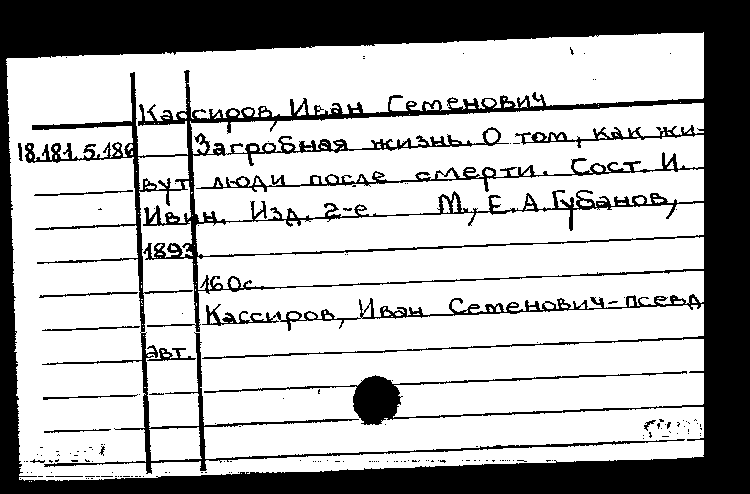 Кассиров, Иван Семенович
18.181.5.186 Загробная жизнь. О том, как жи-
вут люди после смерти. Сост. И.
Ивин. Изд. 2-е. М., Е.А.Губанов,
1893.
160с.
Кассиров, Иван Семенович-псевд.
авт.